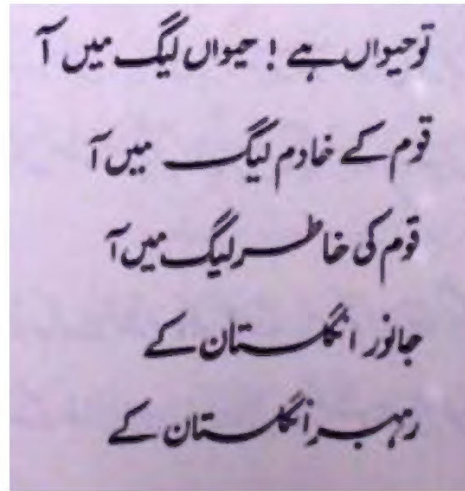 تو حیواں ہے ! حیواں لیگ میں آ
قوم کے خادم لیگ میں آ
قوم کی خاطر لیگ میں آ
جانور انگلستان کے
رہبر انگلستان کے